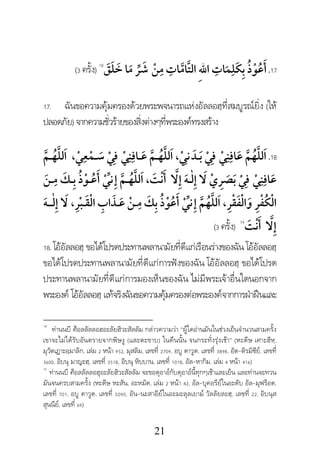 17. أَعُوْذُ بِكَلِمَاتِ اللهِ التَّامَّاتِ مِنْ شَرِّ مَا خَلَقَ ١٨ (3 ครั้ง)
17. ฉันขอความคุ้มครองด้วยพระพจนารถแห่งอัลลอฮฺที่สมบูรณ์ยิ่ง (ให้
ปลอดภัย) จากความชั่วร้ายของสิ่งต่างๆที่พระองค์ทรงสร้าง
18. اَللَّهُمَّ عَافِنِيْ فِيْ بَدَنِيْ، اَللَّهُمَّ عَافِنِيْ فِيْ سَمْعِيْ، اَللَّهُمَّ
عَافِنِيْ فِيْ بَصَرِيْ لَا إِلَـهَ إِلاَّ أَنْتَ، اَللَّهُمَّ إِنِّيْ أَعُوْذُ بِكَ مِنَ
الْكُفْرِ وَالْفَقْرِ، اَللَّهُمَّ إِنِّيْ أَعُوْذُ بِكَ مِنْ عَذَابِ الْقَبْرِ، لَا إِلَـهَ
إِلاَّ أَنْتَ ١٩ (3 ครั้ง)
18. โอ้อัลลอฮฺ ขอได้โปรดประทานพลานามัยที่ดีแก่เรือนร่างของฉัน โอ้อัลลอฮฺ
ขอได้โปรดประทานพลานามัยที่ดีแก่การฟังของฉัน โอ้อัลลอฮฺ ขอได้โปรด
ประทานพลานามัยที่ดีแก่การมองเห็นของฉัน ไม่มีพระเจ้าอื่นใดนอกจาก
พระองค์ โอ้อัลลอฮฺ แท้จริงฉันขอความคุ้มครองต่อพระองค์จากการฝ่าฝืนและ
18 ท่านนบี ศ็อลลัลลอฮุอะลัยฮิวะสัลลัม กล่าวความว่า "ผู้ใดอ่านมันในช่วงเย็นจำนวนสามครั้ง
เขาจะไม่ได้รับอันตรายจากพิษงู (และตะขาบ) ในคืนนั้น จนกระทั่งรุ่งเช้า" (หะดีษ เศาะฮีหฺ,
มุวัตเฏาะอฺมาลิก, เล่ม 2 หน้า 952, มุสลิม, เลขที่ 2709, อบู ดาวูด, เลขที่ 3898, อัต-ติรมิซีย์, เลขที่
3600, อิบนุ มาญะฮฺ, เลขที่ 3518, อิบนุ หิบบาน, เลขที่ 1018, อัล-หากิม, เล่ม 4 หน้า 416)
19 ท่านนบี ศ็อลลัลลอฮุอะลัยฮิวะสัลลัม จะขอดุอาอ์กับดุอาอ์นี้ทุกๆเช้าและเย็น และท่านจะทวน
มันจนครบสามครั้ง (หะดีษ หะสัน, อะหมัด, เล่ม 2 หน้า 42, อัล-บุคอรีย์ในอะดับ อัล-มุฟร็อด,
เลขที่ 701, อบู ดาวูด, เลขที่ 5090, อัน-นะสาอีย์ในอะมะลุลเยามิ วัลลัยละฮฺ, เลขที่ 22, อิบนุส
สุนนีย์, เลขที่ 69)
21